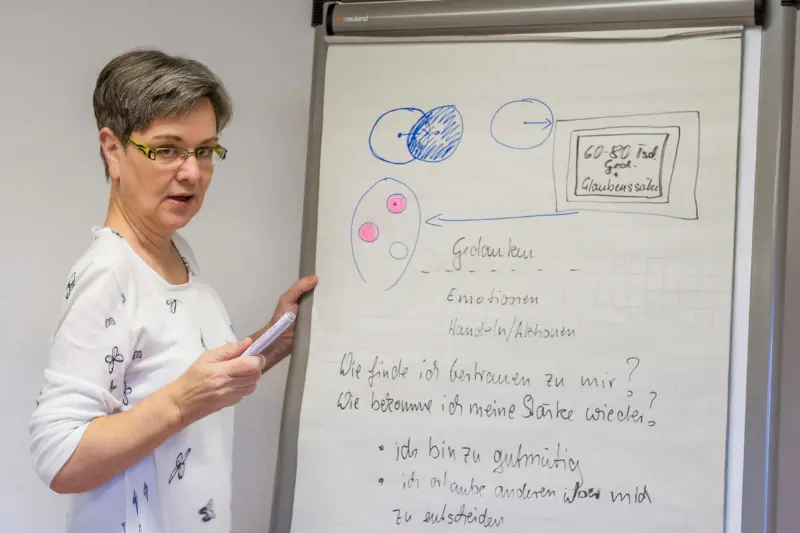 neuland
60-80 Tsd.
Ged.
+
Glaubenssätze
Gedanken
Emotionen
Handeln/Aktionen
Wie finde ich Vertrauen zu mir?
Wie bekomme ich meine Stärke wieder?
• ich bin zu gutmütig
• ich erlaube anderen über mich
zu entscheiden